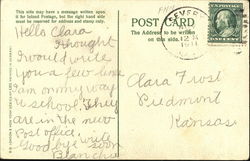 This side may have a message written upon
it for Inland Postage, but the right hand side
must be reserved for address and stamp only.
POST CARD
The Address to be written
on this side.
Hello Clara
I thought
I would write
you a few lines
I am on my way
to school. They
are in the new
Post office.
Good bye write soon
Blanche
Clara Trost
Piedmont
Kansas
1911